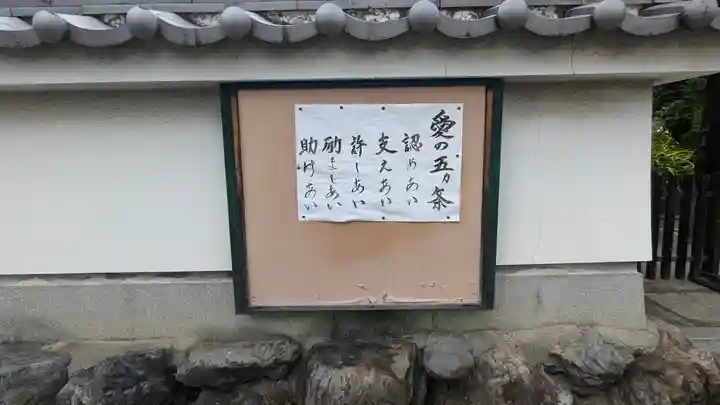 愛の五ヵ条
認めあい
支えあい
許しあい
励ましあい
助けあい